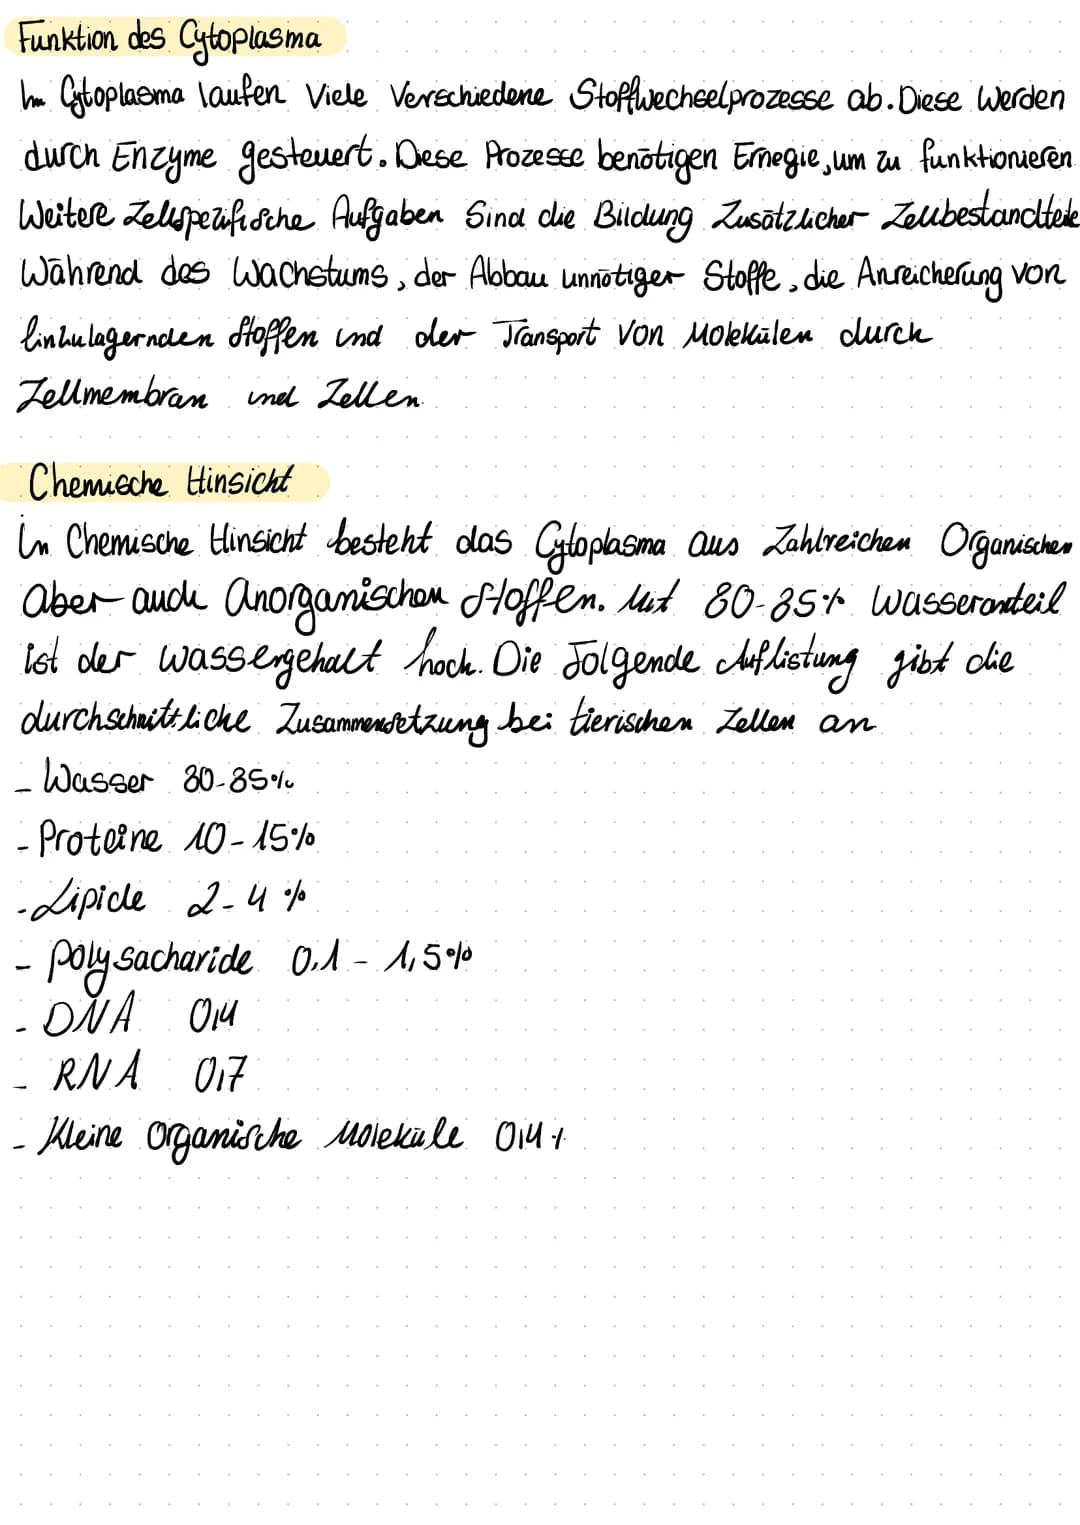 Funktion des Cytoplasma
Im Cytoplasma laufen Viele Verschiedene Stoffwechselprozesse ab. Diese Werden
durch Enzyme gesteuert. Diese Prozesse benötigen Ernegie, um zu funktionieren
Weitere Zellspezifische Aufgaben Sind die Bildung Zusätzlicher Zellbestandteile
Während des Wachstums, der Abbau unnötiger Stoffe, die Anreicherung von
einzulagernden Stoffen und der Transport von Molekülen durch
Zellmembran und Zellen
Chemische Hinsicht
In Chemische Hinsicht besteht das Cytoplasma aus Zahlreichen Organischen
Aber auch Anorganischen Stoffen. Mit 80-85% Wasseranteil
ist der Wassergehalt hoch. Die Folgende Auflistung gibt die
durchschnittliche Zusammensetzung bei tierischen Zellen an
- Wasser 80-85%
- Proteine 10-15%
- Lipide 2-4%
- Polysacharide 0,1 - 1,5%
- DNA 0,4
- RNA 0,7
- Kleine Organische Moleküle 0,4%